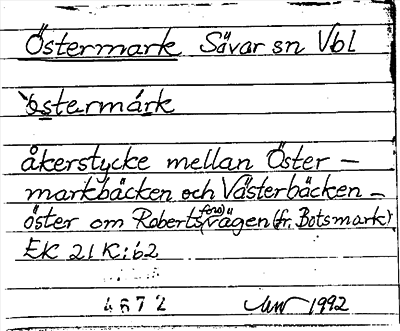 Östermark Sävar sn Vbl
östermárk
åkerstycke mellan Öster -
markbäcken och Västerbäcken -
öster om Robertsforsvägen (fr. Botsmark)
EK 21 K:62
4672 1992